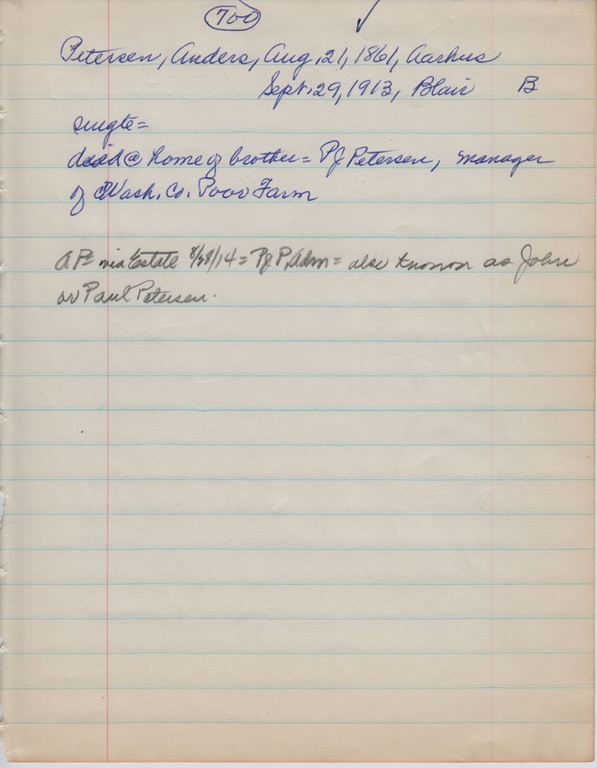 700
Petersen, Anders, Aug. 21, 1861, Aarhus
Sept. 29, 1913, Blair B
single=
died @ home of brother= PJ Petersen, manager
of Wash. Co. Poor Farm
AP= Estate /14= PJP, Adm= also known as John
or Paul Petersen.